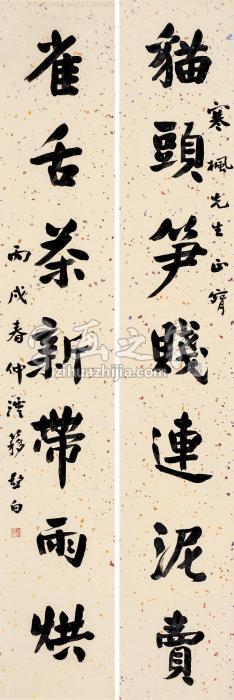 寒楓先生正
貓頭笋賤連泥賣
雀舌茶新帶雨烘
丙戌春仲
白
字画之家
zihuazhijia.com